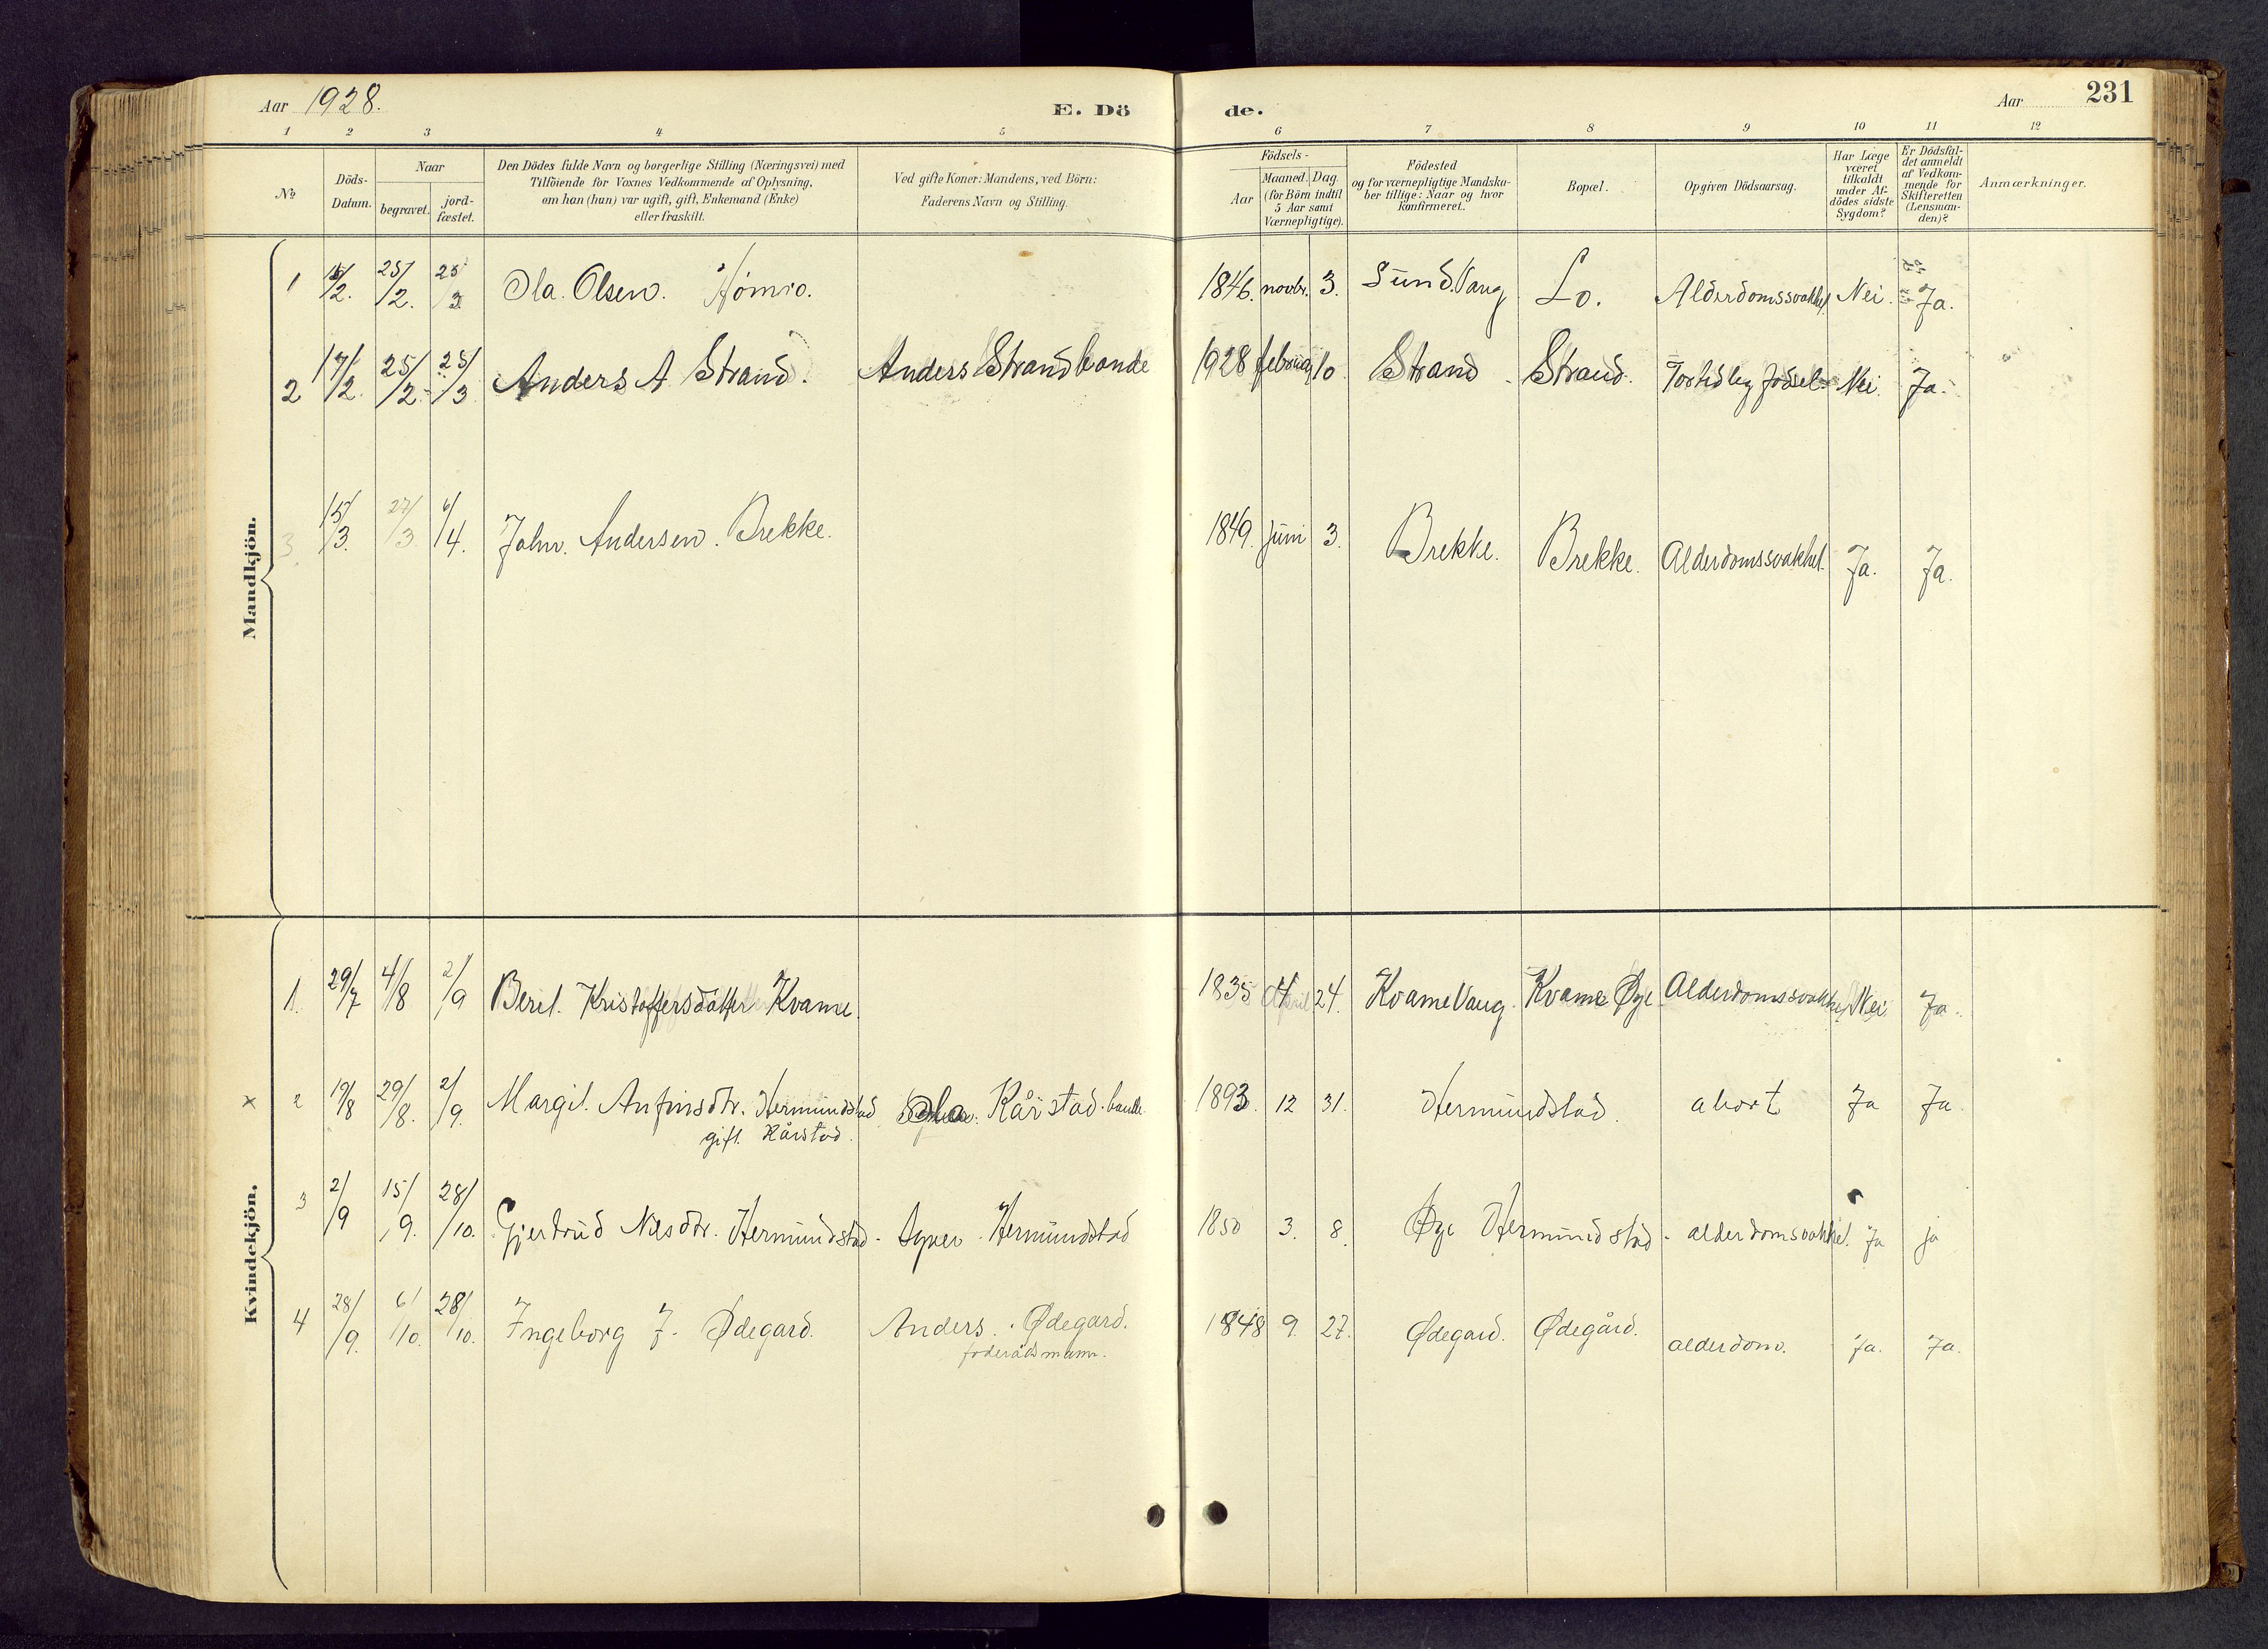 Aar 1928. E. Dö de. Aar 231
1 2 3 4 5 6 7 8 9 10 11 12
No
Döds-
Datum.
Naar
begravet.
jord-
fæstet.
Den Dödes fulde Navn og borgerlige Stilling (Næringsvei) med
Tilföiende for Voxnes Vedkommende af Oplysning,
om han (hun) var ugift, gift, Enkemand (Enke)
eller fraskilt.
Ved gifte Koner: Mandens, ved Börn:
Faderens Navn og Stilling.
Födsels-
Aar
Maaned. Dag.
(for Börn indtil
5 Aar samt
Værnepligtige).
Födested
og for værnepligtige Mandska-
ber tillige: Naar og hvor
konfirmeret.
Bopæl.
Opgiven Dödsaarsag.
Har Læge
været
tilkaldt
under Af-
dödes sidste
Sygdom?
Er Dödsfal-
det anmeldt
af Vedkom-
mende for
Skifteretten
(Lensman-
den)?
Anmærkninger.
Mandkjön.
1 /2. 25/2. 25/3 Ola. Olsen. 1846. novbr. 3. Sund. Vang Lo. Alderdomssvakhet Nei. Ja.
2 17/2. 25/2. 25/3 Anders A Strand. Anders Strand bonde 1928 februar 10 Strand Strand. Fortidleg fødsel. Nei. Ja.
3 15/3. 27/3. 4/4. John. Andersen. Brekke. 1849. Juni 3. Brekke. Brekke. Alderdomssvakhet. Ja. Ja.
Kvindekjön.
1. 29/7 4/8 2/9 Berit. Kristoffersdatter Kvame. 1835 April 24. Kvame Vang. Kvame Øye Alderdomssvakhet Nei. Ja.
x 2 19/8 29/8. 2/9. Margit. Anfinsdtr. Hermundstad Ola Kårstad. bonde 1893. 12 31. Hermundstad. abort Ja Ja.
gift. Kårstad.
3 2/9 15/9. 28/10. Gjertrud Nilsdtr. Hermundstad. Hermundstad 1850 3. 8. Øye Hermundstad. alderdomsvakhet. Ja ja
4 28/9. 6/10. 28/10. Ingeborg J. Ødegard. Anders. Ødegard. 1848 9. 27. Ødegard. Ødegård. alderdom. Ja. Ja.
foderådsmann.